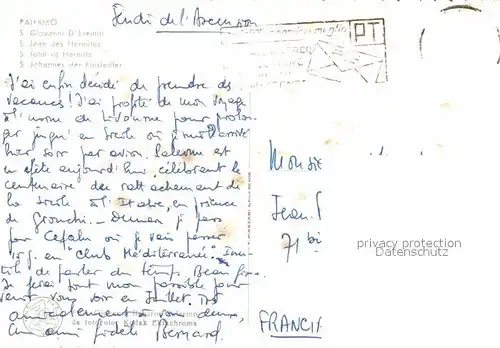 Jeudi de l'Ascension
PALERMO
S. Giovanni D'Eremiti
S. Jean des Hermites
S. John of Hermits
S. Johannes der Einsiedler
PT
J'ai enfin décidé de prendre des
vacances ! J'ai profité de mon voyage
à l'usine de Livourne pour prolon-
ger jusqu'en Sicile où je suis arrivé
hier soir par avion. Palerme est
en fête aujourd'hui, célébrant le
centenaire du rattachement de
la Sicile à l'Italie, en présence
de Gronchi. Demain je pars
pour Cefalu où je vais passer
15 j. en "club Méditerranée". Inu-
tile de parler du temps. Beau fixe.
Je ferai tout mon possible pour
venir vous voir en Juillet. Très
amicalement à vous deux,
ami fidèle Bernard.
da fotocolor Kodak Ektachrome
Monsie
Jean
71 bi
privacy protection
Datenschutz
FRANCI